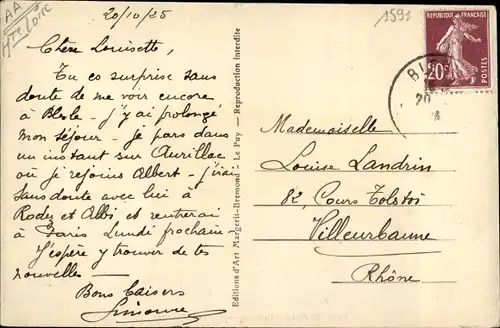 AA
Hte Loire
20/10/25
1591
Chère Louisette,
Tu es surprise sans
doute de me voir encore
à Blesle - j'y ai prolongé
mon séjour - Je pars dans
un instant sur Aurillac
où je rejoins Albert - j'irai
sans doute avec lui à
Rodez et Albi et rentrerai
à Paris Lundi prochain
J'espère y trouver de tes
nouvelles -
Bons baisers
Simone
Editions d'Art Margerit-Bremond - Le Puy - Reproduction interdite
REPUBLIQUE FRANÇAISE
20c
POSTES
BL
20
Mademoiselle
Louise Landrin
82, Cours Tolstoï
Villeurbanne
Rhône